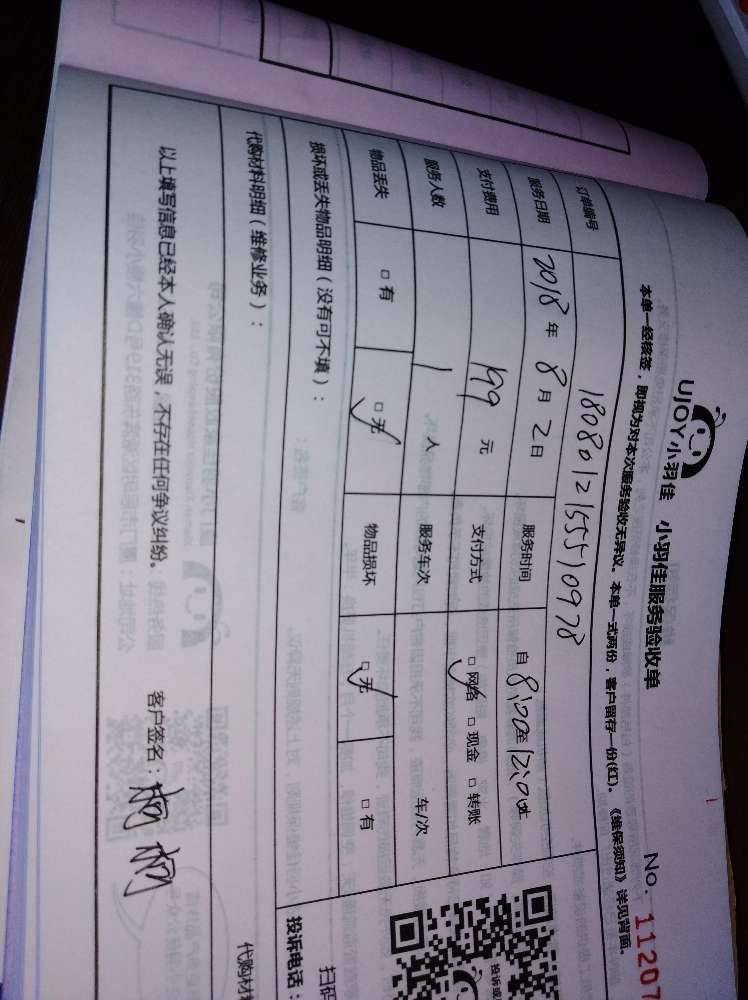 UJOY小羽佳 小羽佳服务验收单 No. 11207
本单一经核签，即视为对本次服务验收无异议。本单一式两份，客户留存一份(红)。《维保须知》详见背面。
订单编号 1808012155510978
服务日期 2018年8月2日 服务时间 自8:00至12:00止
支付费用 199元 支付方式 □网络 □现金 □转账
服务人数 1人 服务车次 车/次
物品丢失 □有 □无 物品损坏 □无 □有
损坏或丢失物品明细（没有可不填）：
代购材料明细（维修业务）： 代购材
以上填写信息已经本人确认无误，不存在任何争议纠纷。 客户签名：
投诉或
扫码
投诉电话：